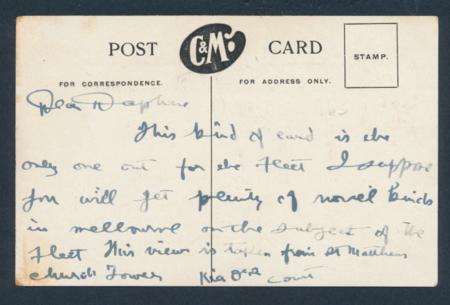 POST C&M. CARD
STAMP.
FOR CORRESPONDENCE. FOR ADDRESS ONLY.
Dear Daphne
This kind of card is the
only one out for the fleet I suppose
you will get plenty of novel kinds
in melbourne on the subject of the
Fleet This view is taken from St Matthews
church Tower Kia Ora court